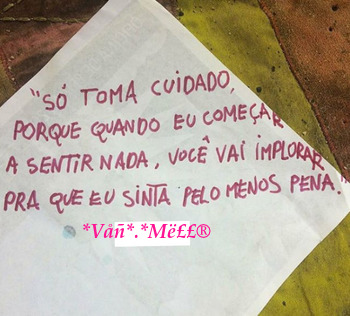 "SÓ TOMA CUIDADO,
PORQUE QUANDO EU COMEÇAR
A SENTIR NADA, VOCÊ VAI IMPLORAR
PRA QUE EU SINTA PELO MENOS PENA."
*Våñ*.*Më££®